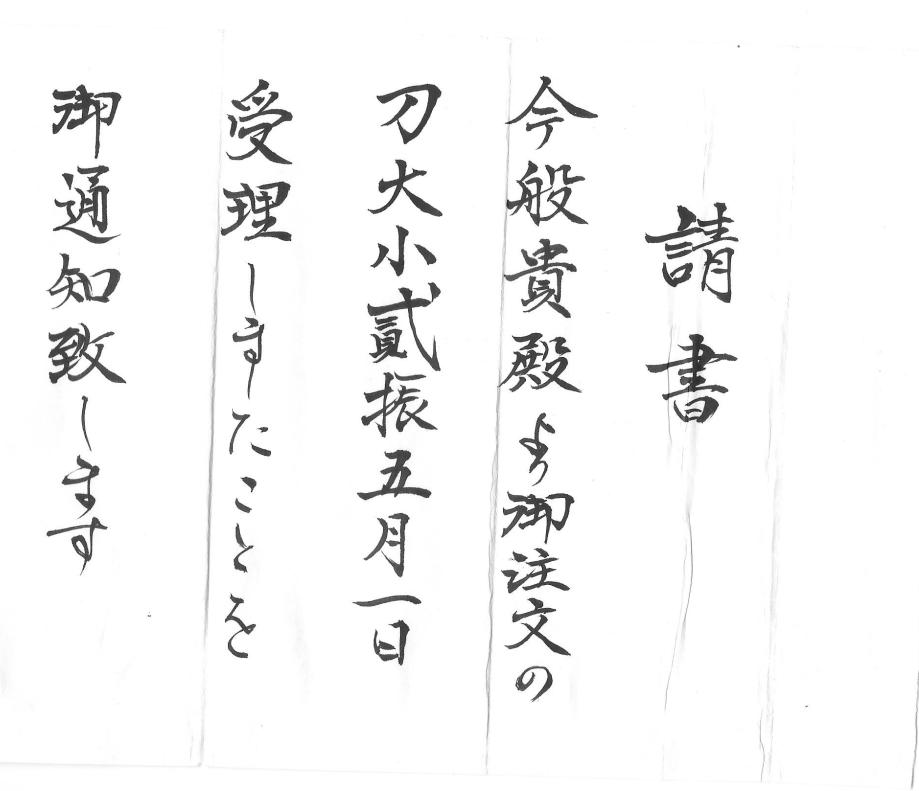 請書
今般貴殿より御注文の
刀大小貳振五月一日
受理しましたことを
御通知致します